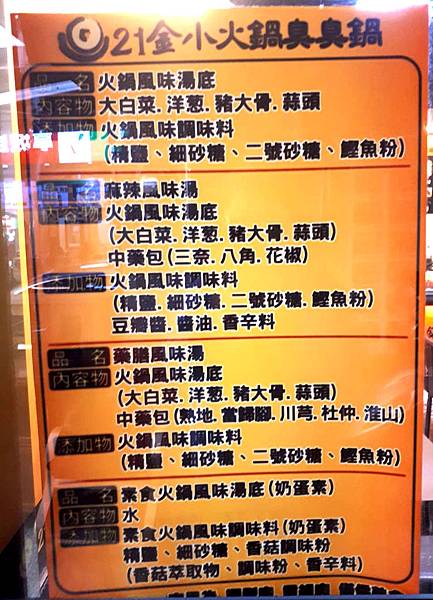 21金小火鍋臭臭鍋
品 名 火鍋風味湯底
內容物 大白菜.洋葱.豬大骨.蒜頭
添加物 火鍋風味調味料
(精鹽、細砂糖、二號砂糖、鰹魚粉)
品 名 麻辣風味湯
內容物 火鍋風味湯底
(大白菜.洋葱.豬大骨.蒜頭)
中藥包(三奈.八角.花椒)
添加物 火鍋風味調味料
(精鹽.細砂糖.二號砂糖.鰹魚粉)
豆瓣醬.醬油.香辛料
品 名 藥膳風味湯
內容物 火鍋風味湯底
(大白菜.洋葱.豬大骨.蒜頭)
中藥包(熟地.當歸腳.川芎.杜仲.淮山)
添加物 火鍋風味調味料
(精鹽、細砂糖、二號砂糖、鰹魚粉)
品 名 素食火鍋風味湯底(奶蛋素)
內容物 水
添加物 素食火鍋風味調味料(奶蛋素)
精鹽、細砂糖、香菇調味粉
(香菇萃取物、調味粉、香辛料)